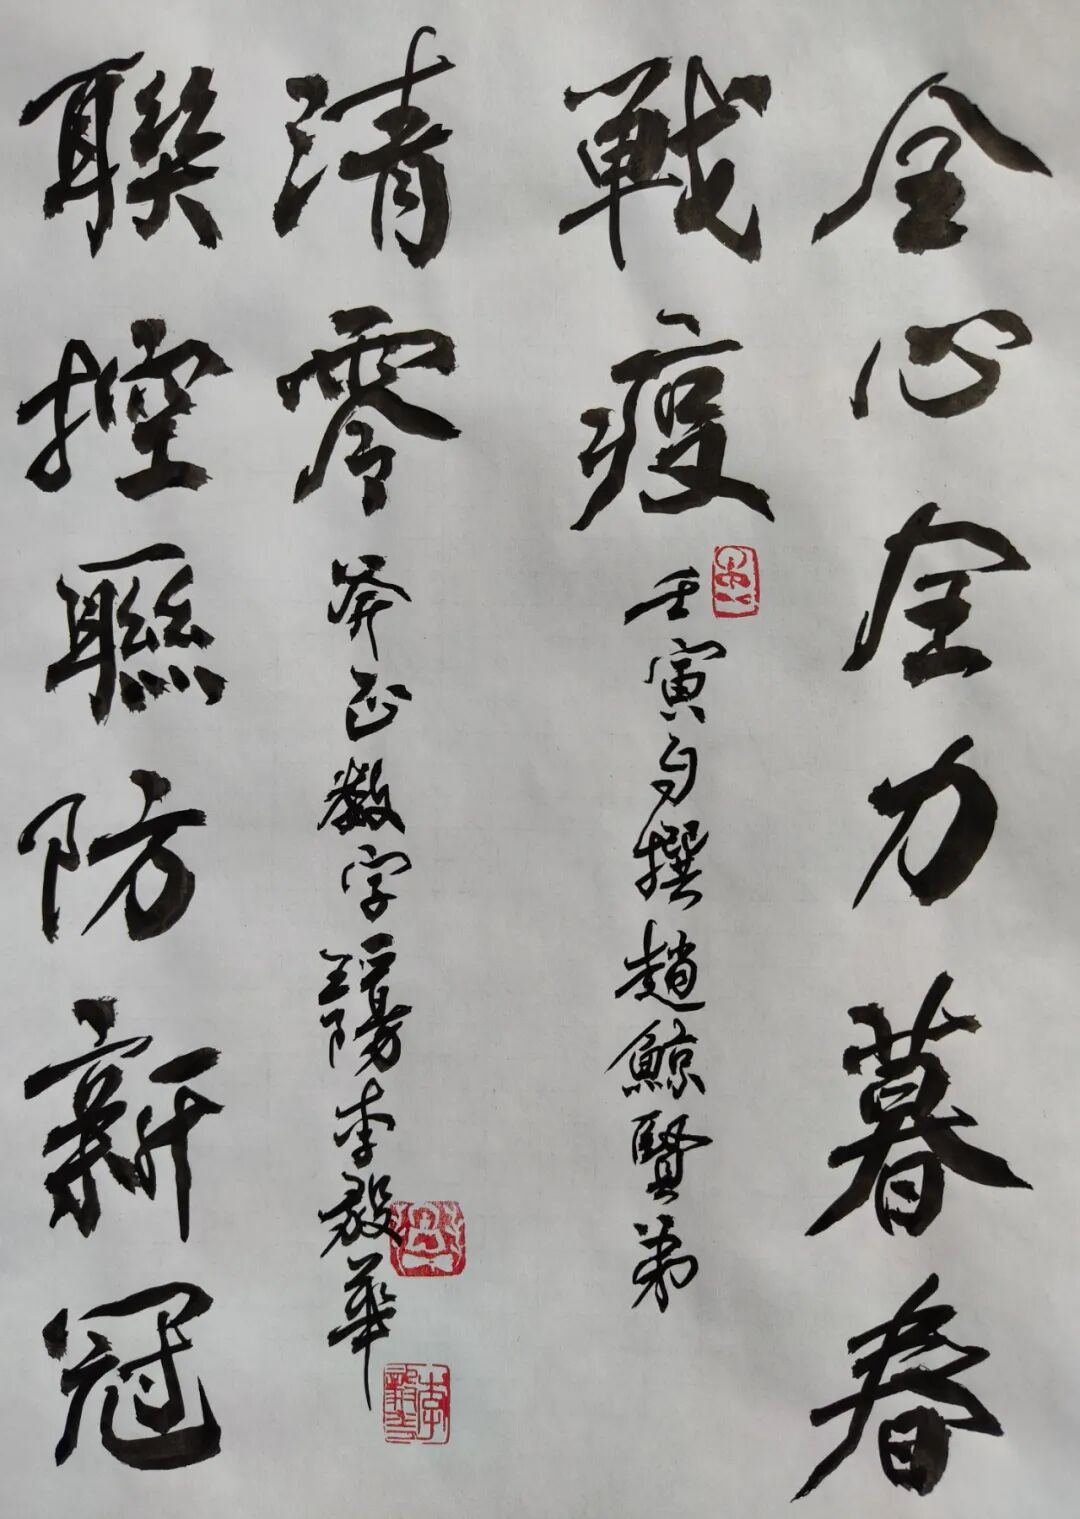 全心全力暮春
戰疫
壬寅句撰趙鯨賢弟
聯控聯防新冠
清零
斧正數字陽李毅華